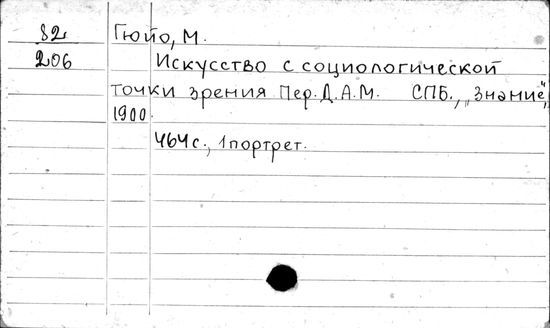 82
206
Гюйо, М.
Искусство с социологической
точки зрения Пер. Д.А.М. СПБ., „Знание",
1900.
464 с., 1 портрет.